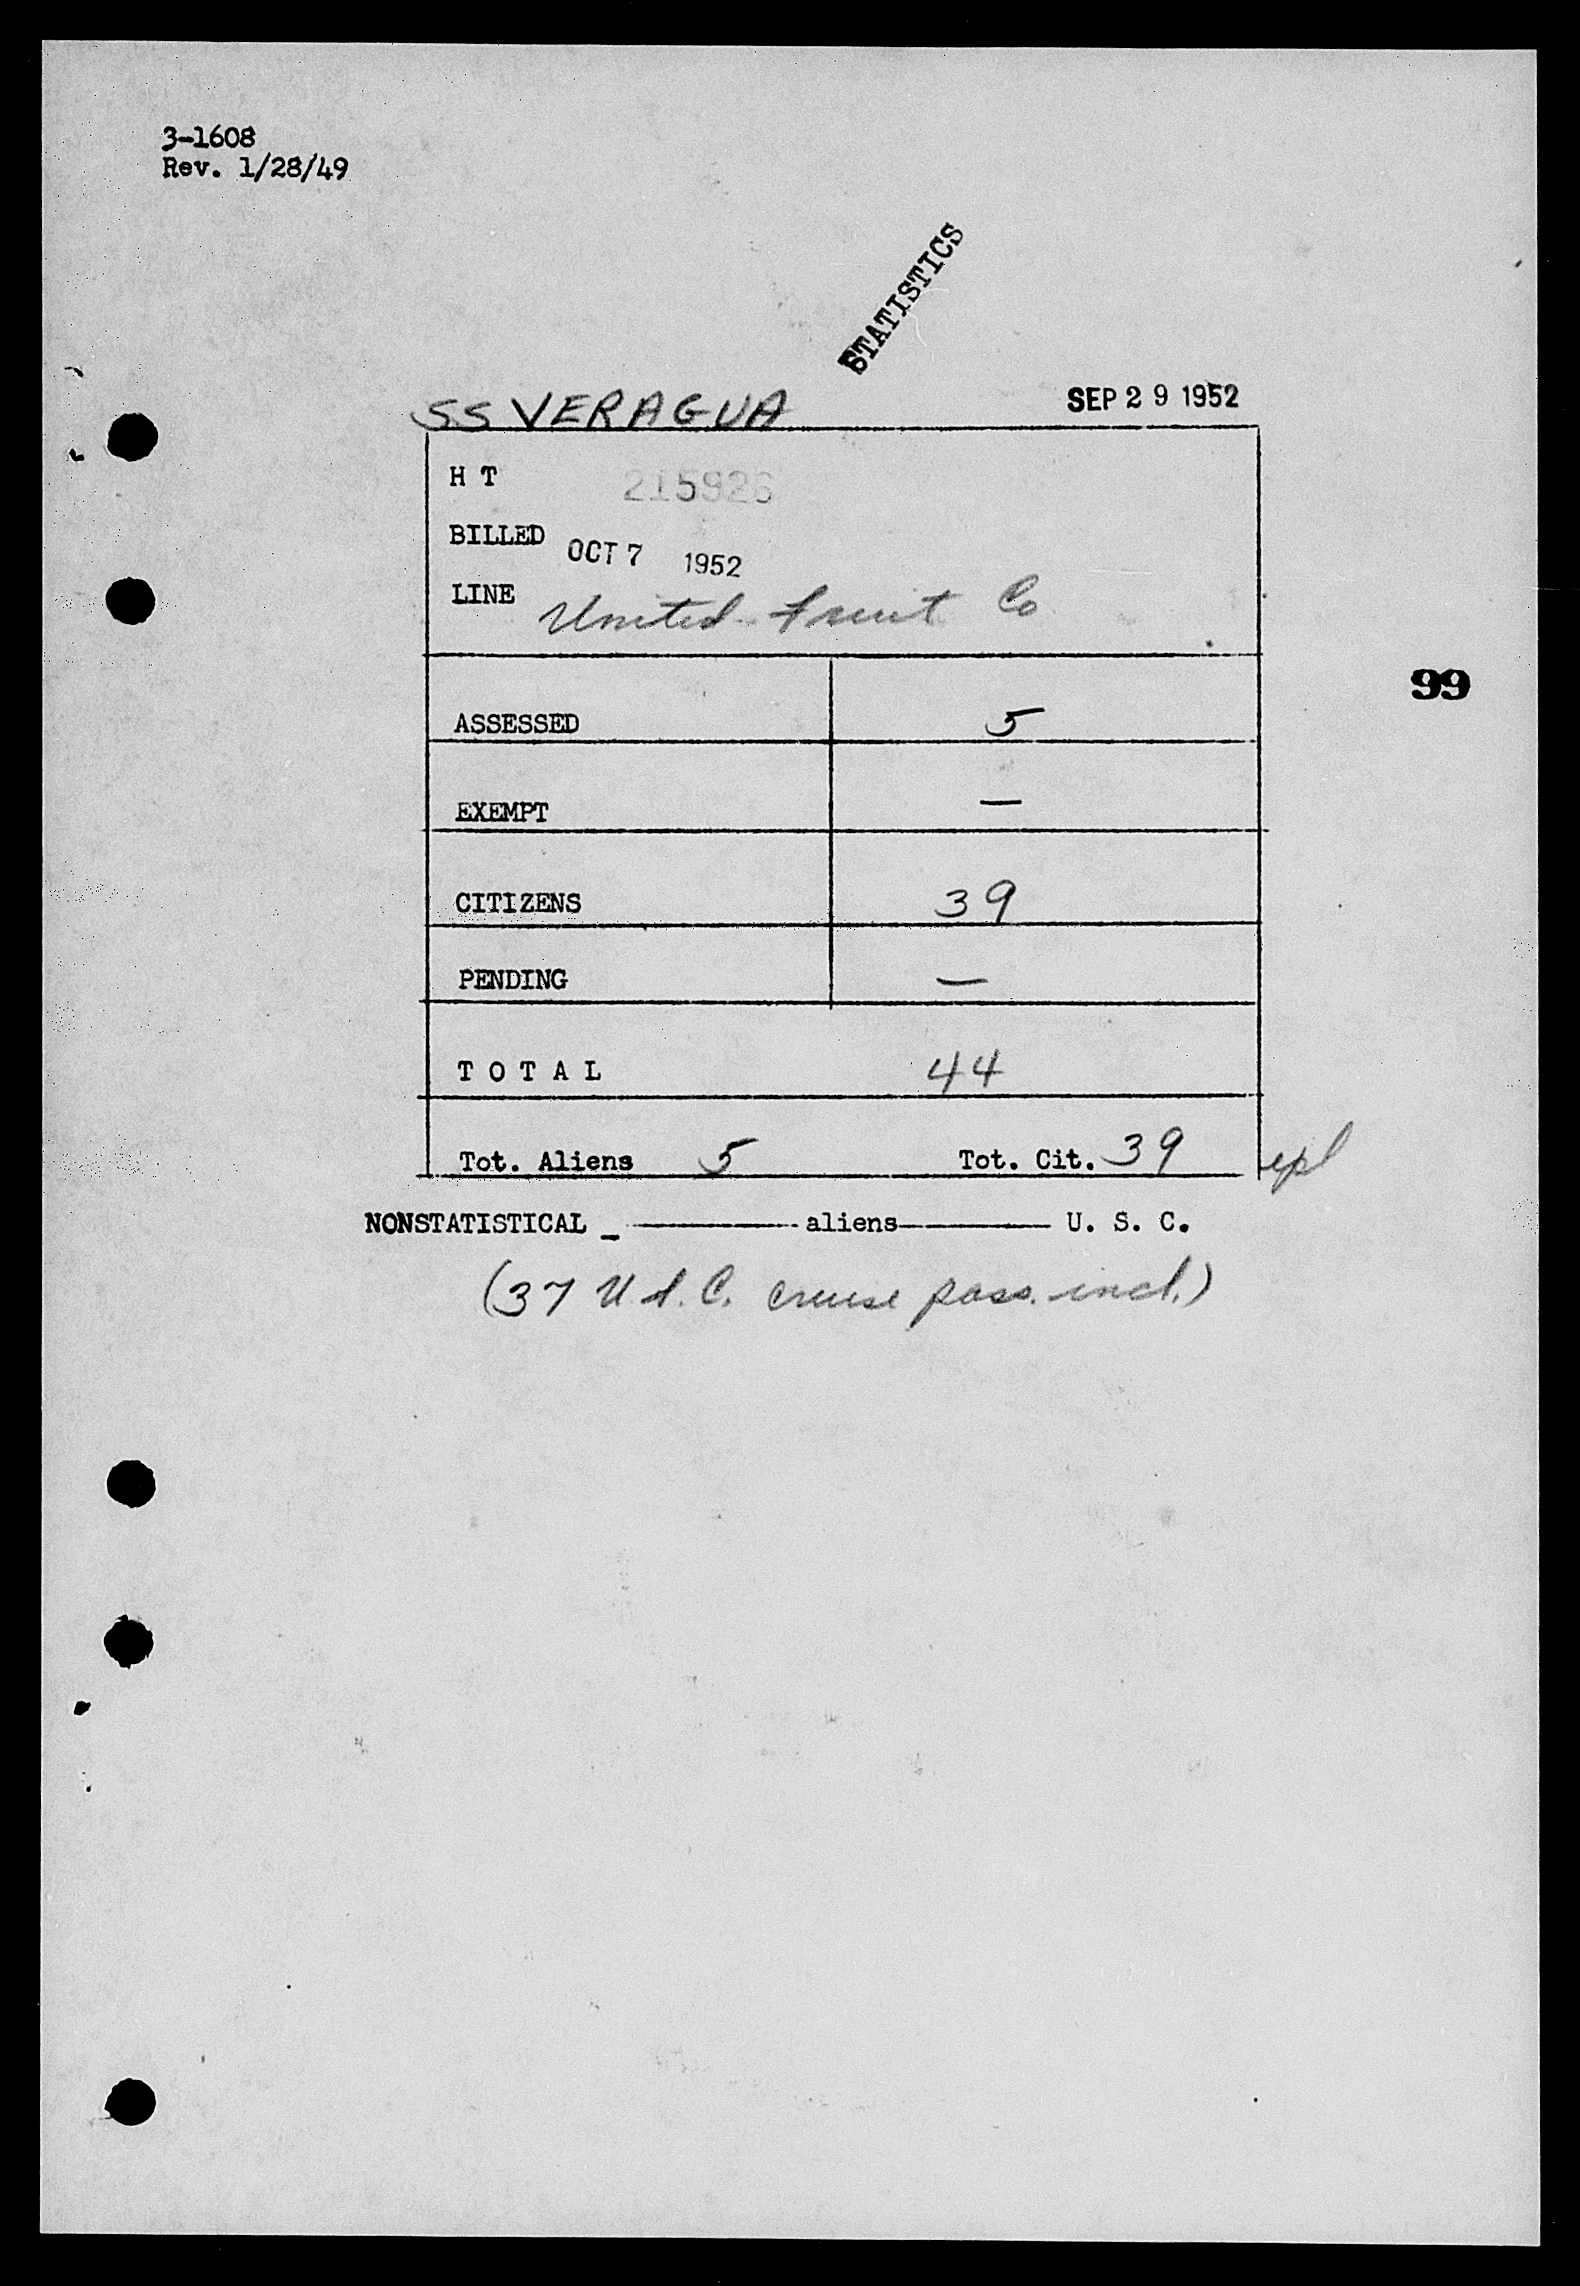 3-1608
Rev. 1/28/49
STATISTICS
SS VERAGUA SEP 29 1952
H T 215926
BILLED OCT 7 1952
LINE United Fruit Co
99
ASSESSED 5
EXEMPT —
CITIZENS 39
PENDING —
T O T A L 44
Tot. Aliens 5 Tot. Cit. 39 epl
NONSTATISTICAL _ ———— aliens———— U. S. C.
(37 U.S.C. cruise pass. incl.)